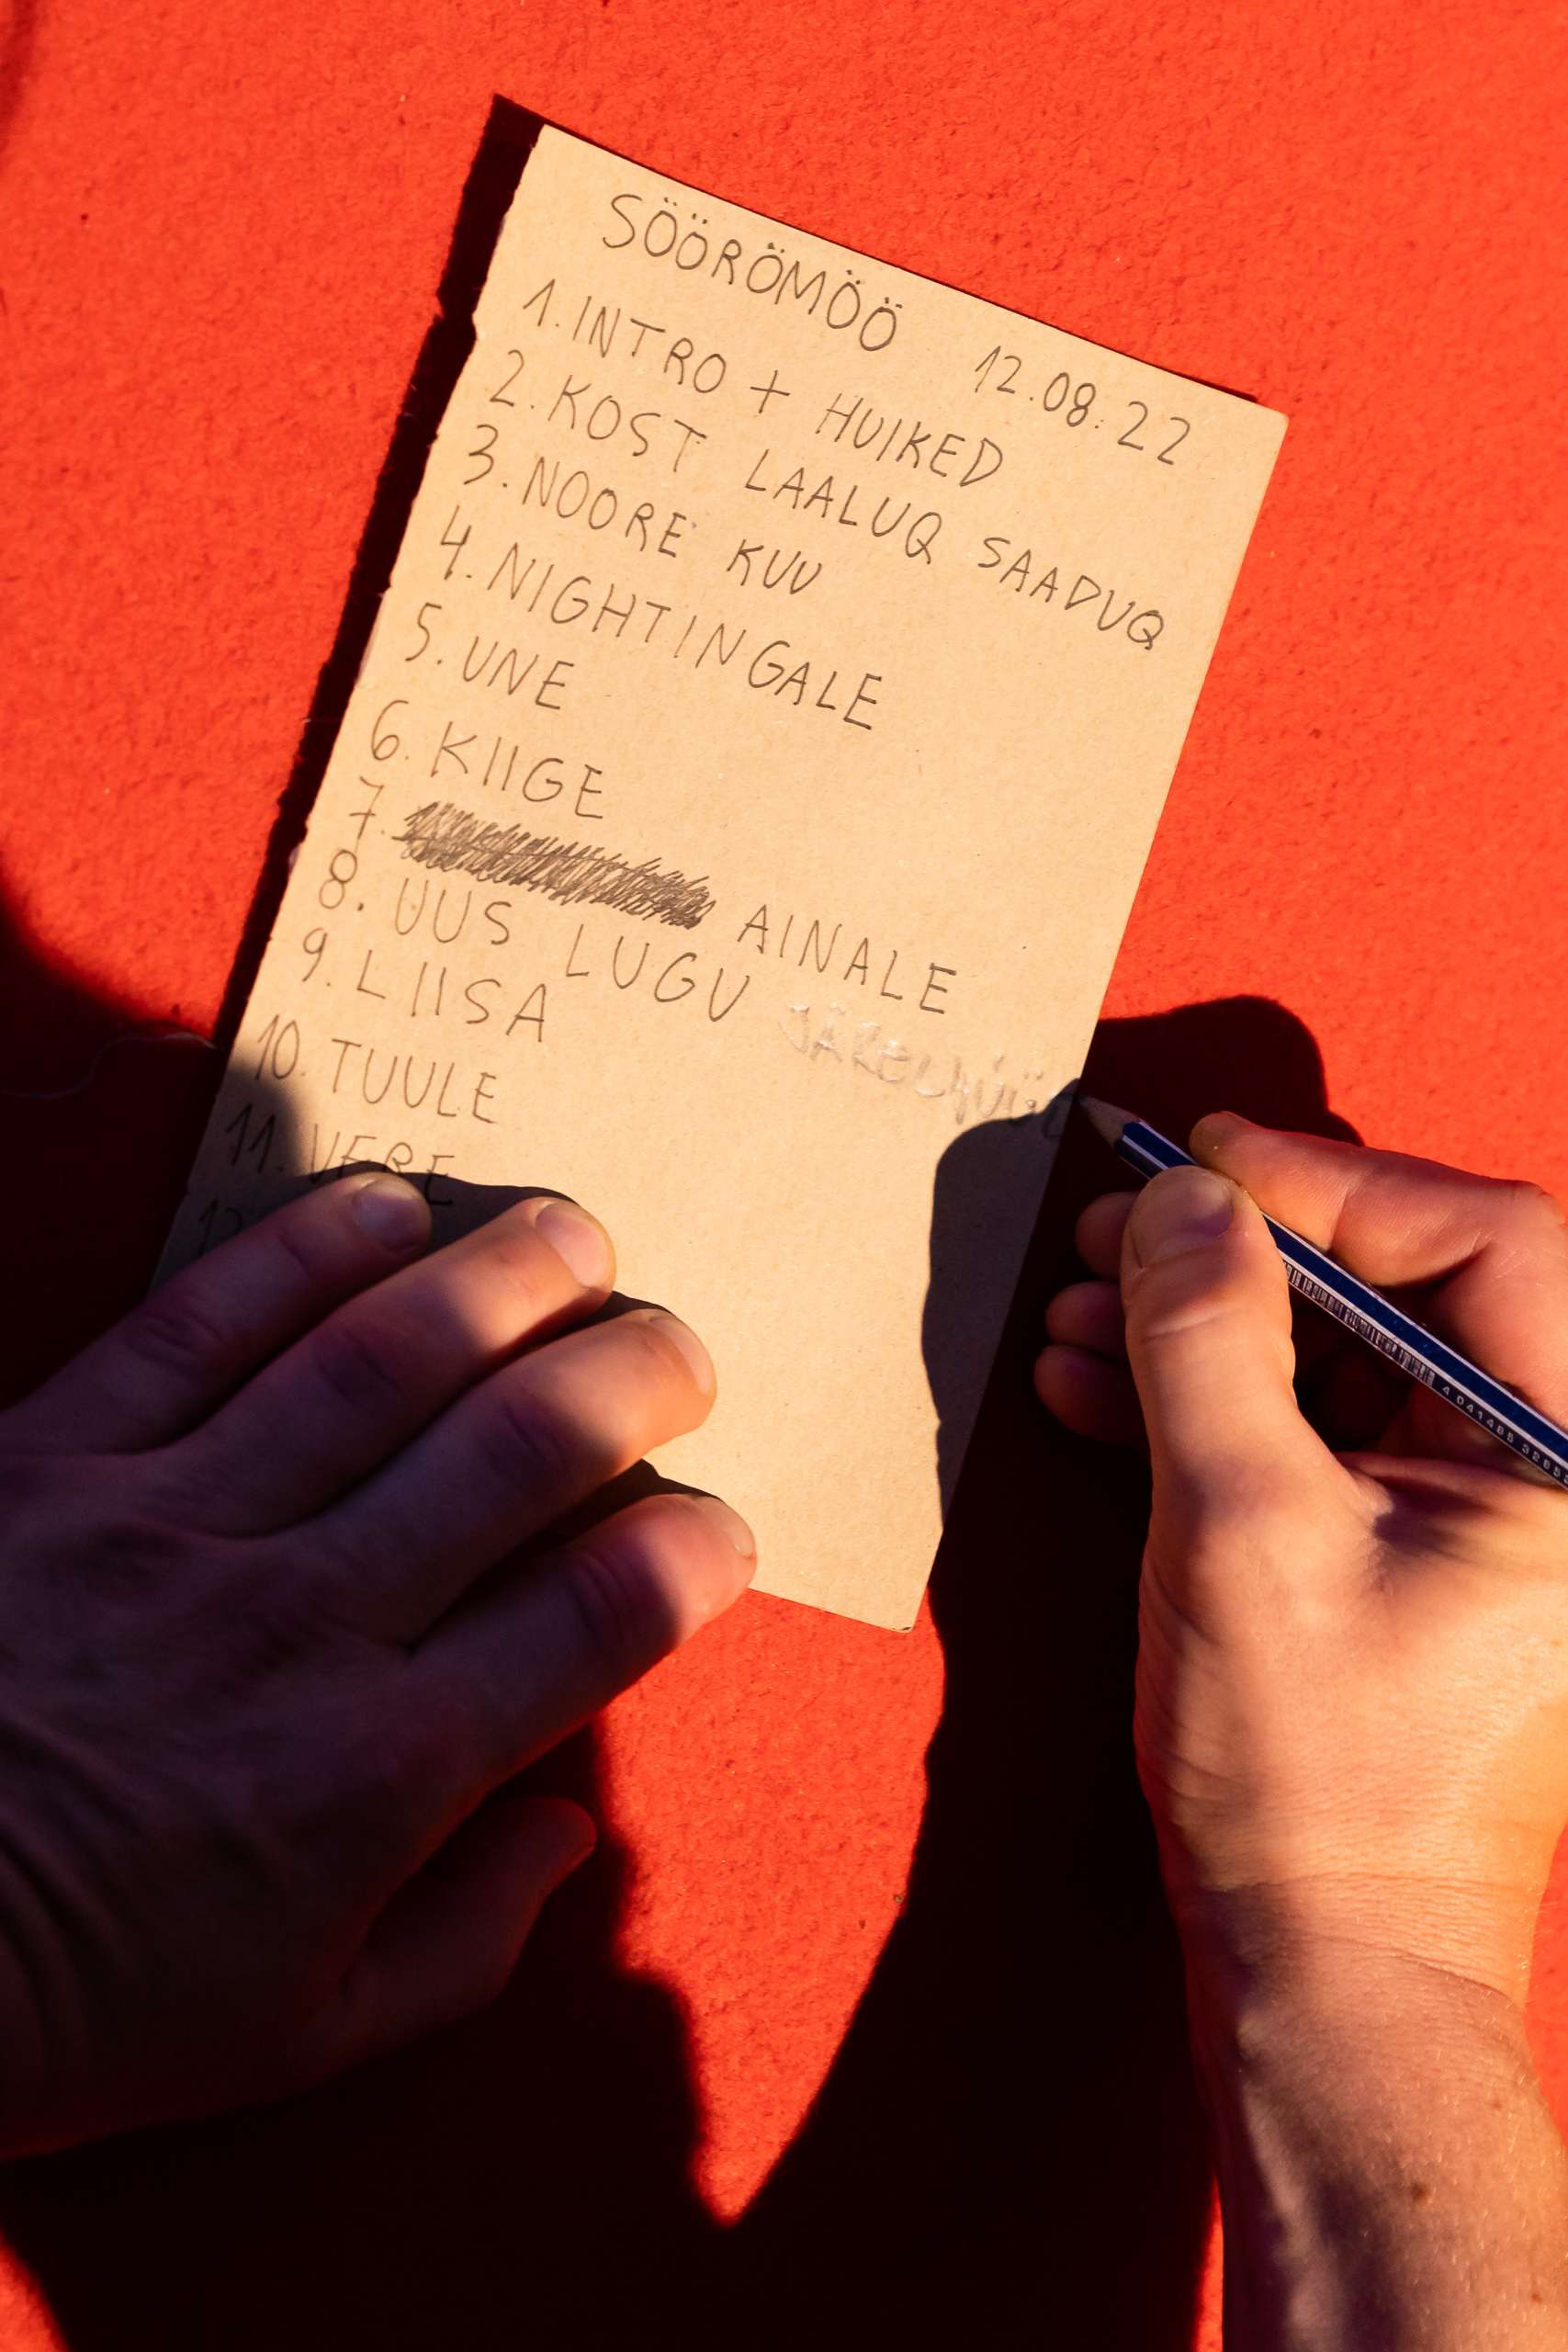 SÖÖRÖMÖÖ 12.08.22
1. INTRO + HUIKED
2. KOST LAALUQ SAADUQ
3. NOORE KUU
4. NIGHTINGALE
5. UNE
6. KIIGE
7. AINALE
8. UUS LUGU JÄRELHÜÜD
9. LIISA
10. TUULE
11. VERE
12